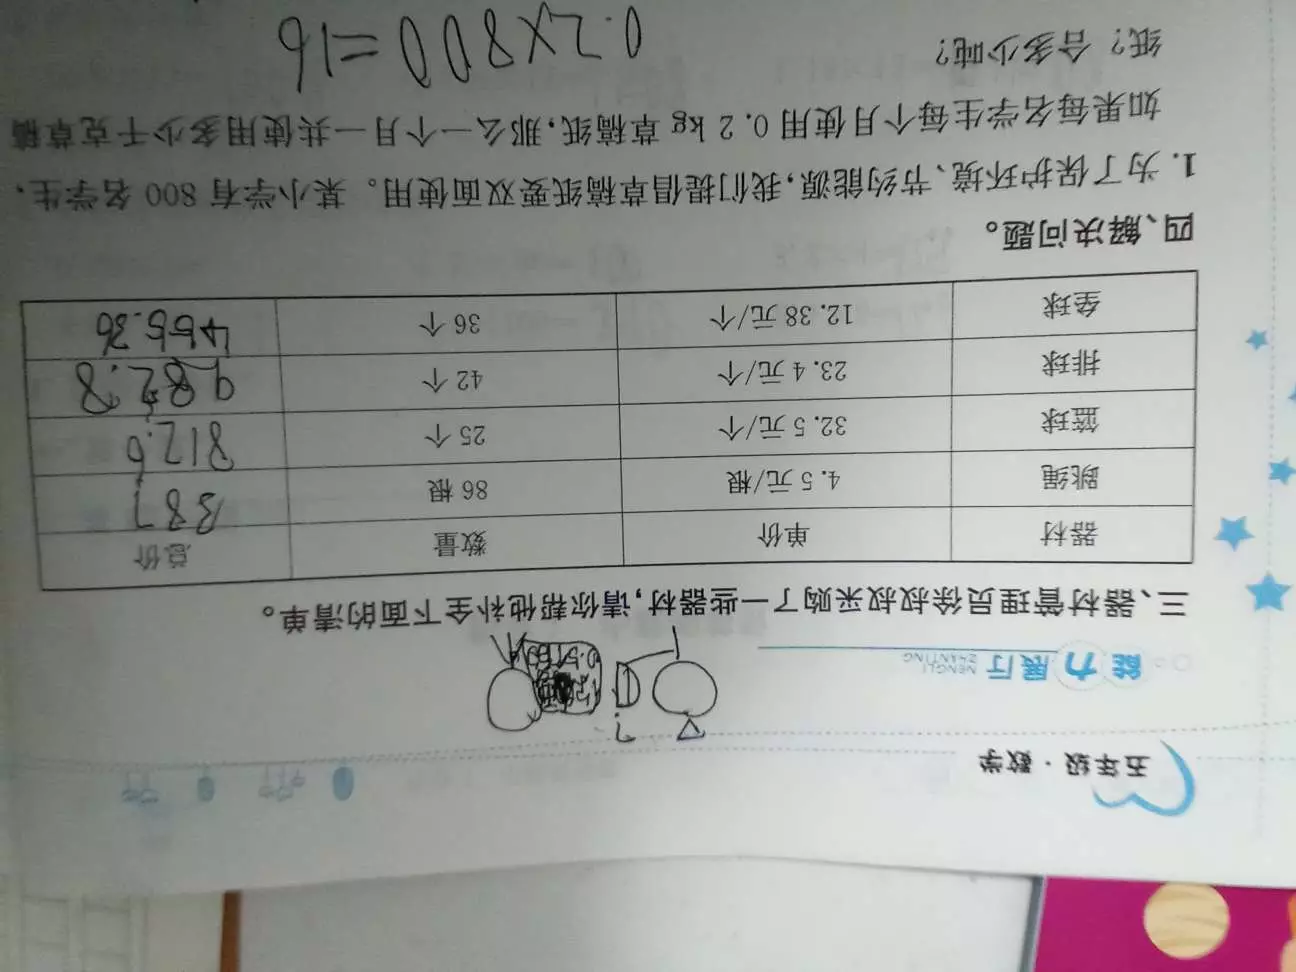 五年级·数学
能力展厅 NENGLI ZHANTING
三、器材管理员徐叔叔采购了一些器材,请你帮他补全下面的清单。
器材 单价 数量 总价
跳绳 4.5元/根 86根 387
篮球 32.5元/个 25个
排球 23.4元/个 42个 982.8
垒球 12.38元/个 36个
四、解决问题。
1.为了保护环境、节约能源,我们提倡草稿纸要双面使用。某小学有800名学生,
如果每名学生每个月使用0.2kg草稿纸,那么一个月一共使用多少千克草稿
纸?合多少吨?
0.2×800=16